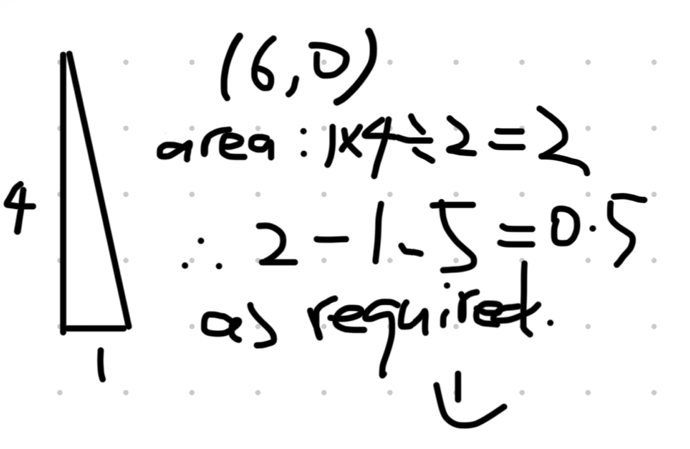 (6,0)
area : 1×4÷2=2
4
∴ 2-1.5=0.5
as required.
1